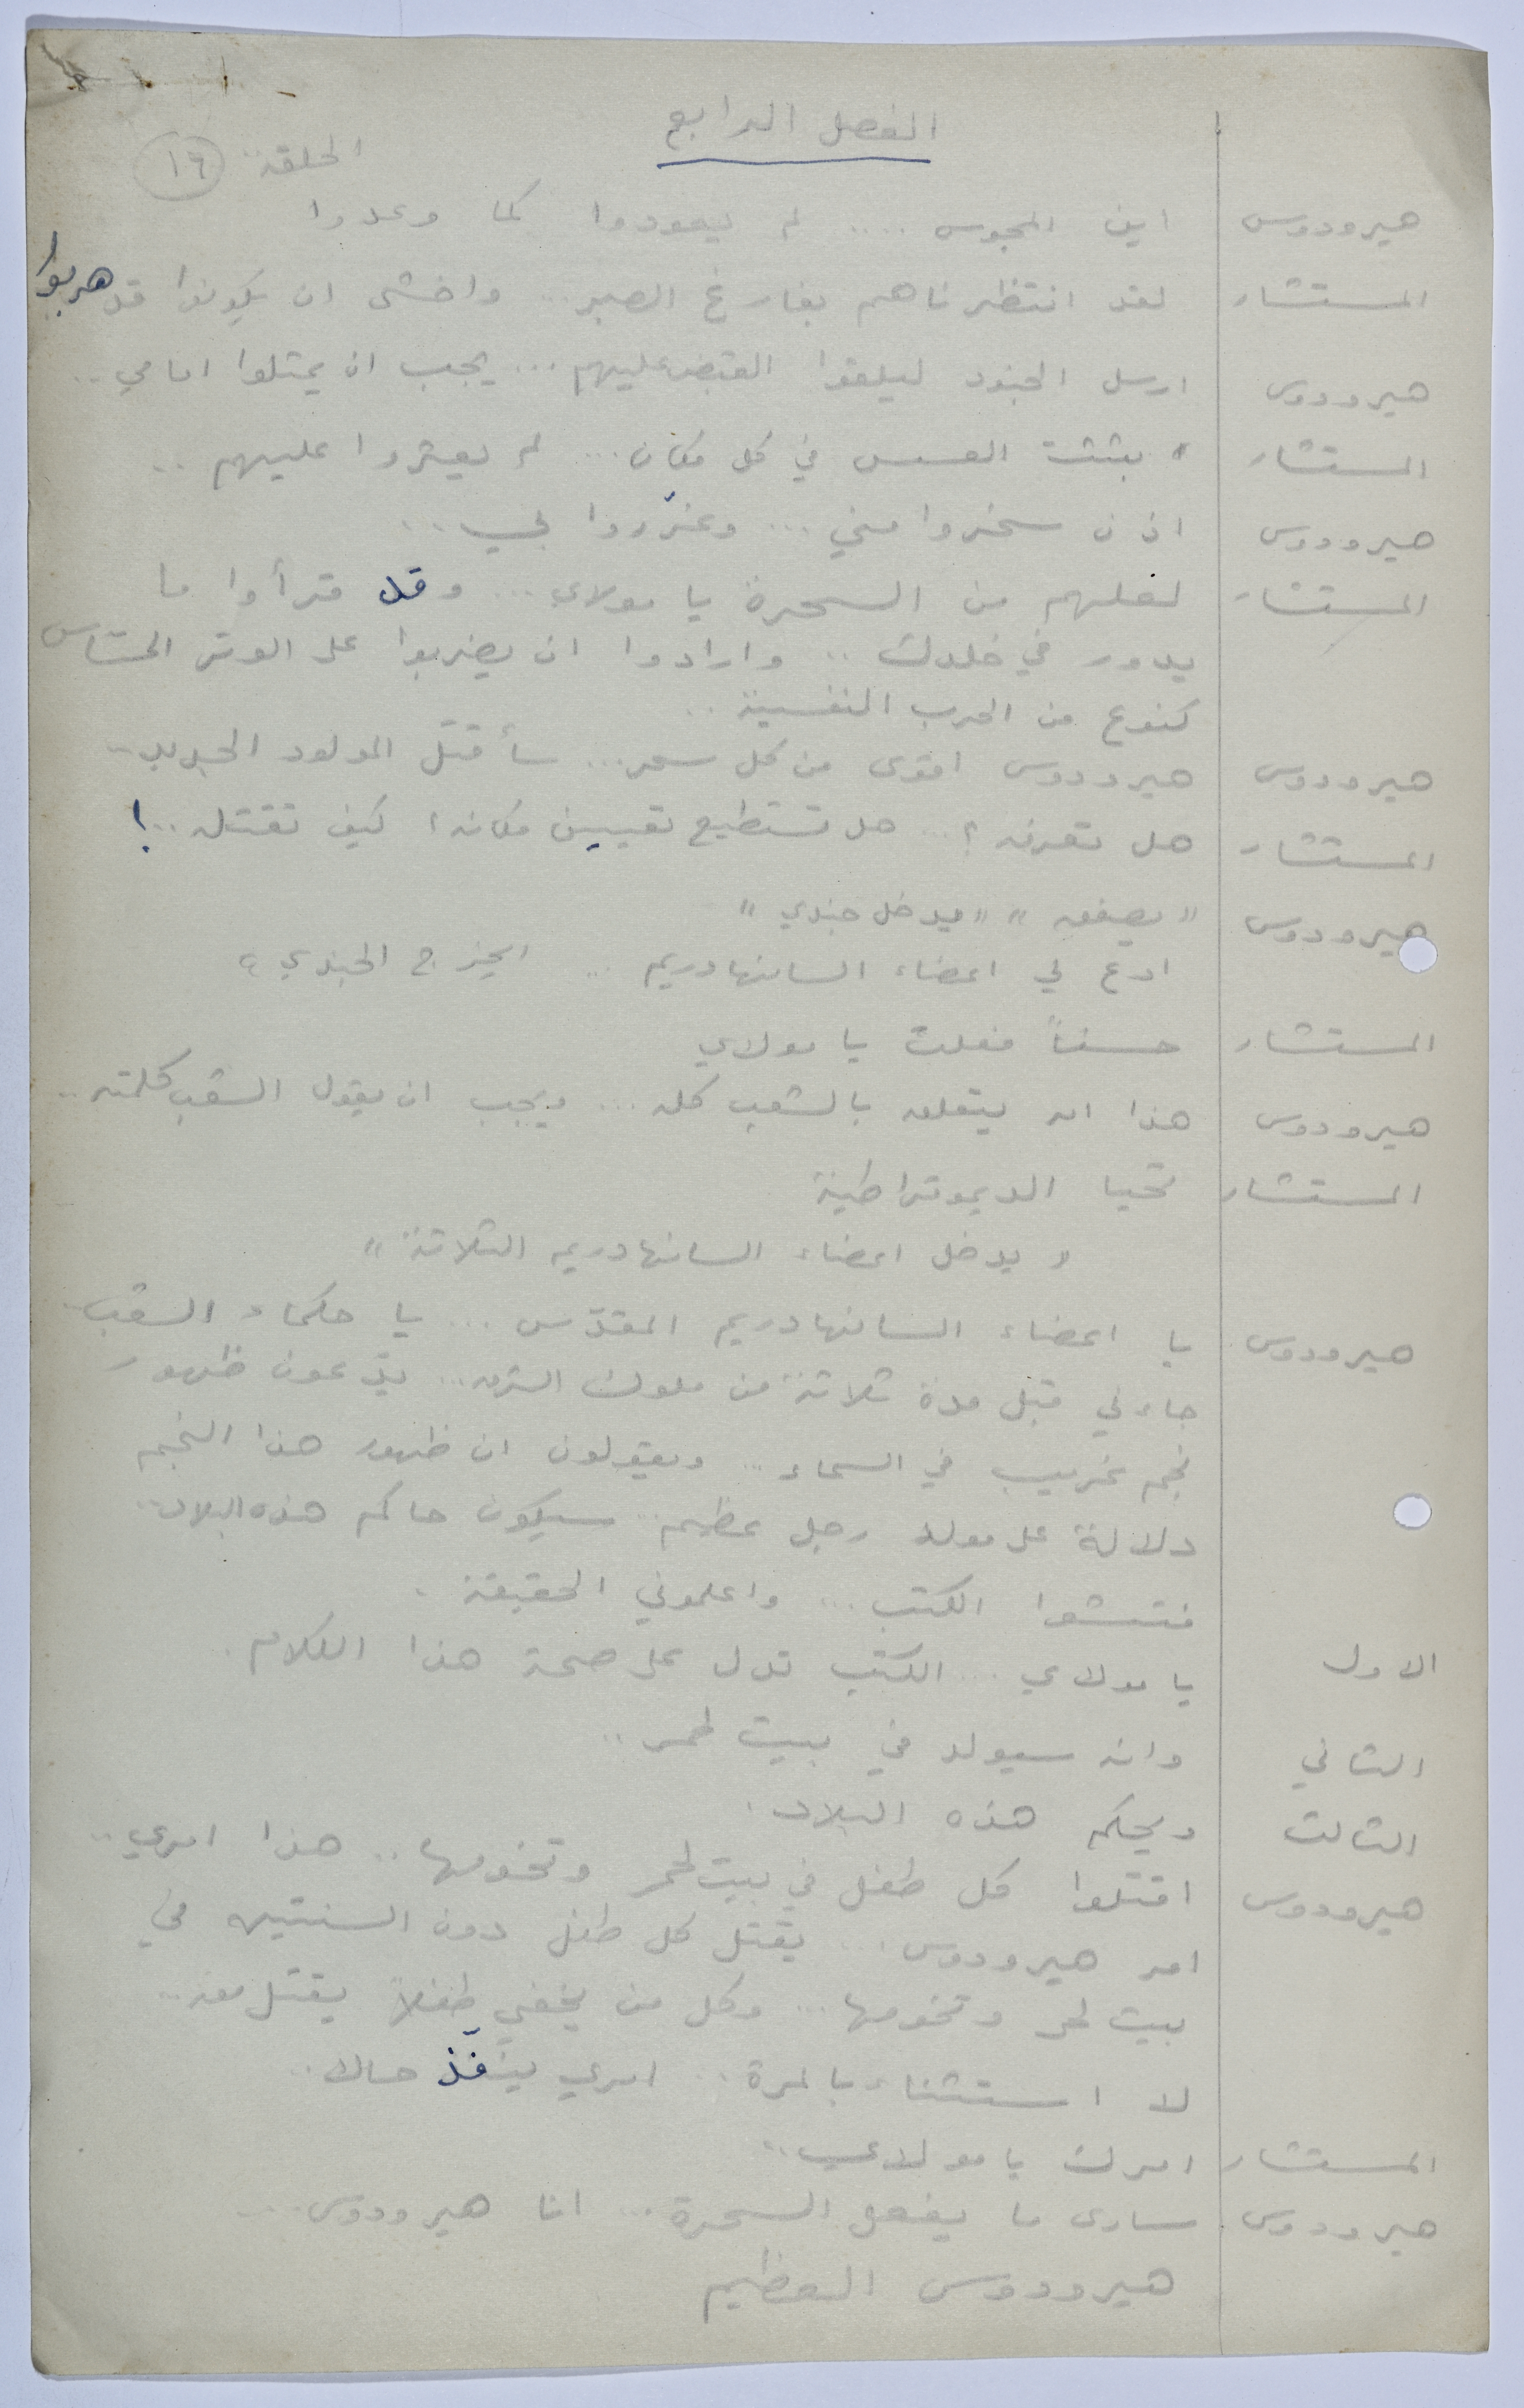 الفصل الرابع
الحلقة ١٦
هيرودوس اين المجوس .... لم يعودوا كما وعدوا
المستشار لقد انتظرناهم بفارغ الصبر ... واخشى ان يكونوا قد هربوا
هيرودوس ارسل الجنود ليلقوا القبض عليهم ... يجب ان يمثلوا امامي ..
المستشار بثثت العسس في كل مكان ... لم يعثروا عليهم ..
هيرودوس اذن سخروا مني ... وغرّروا بي ...
المستشار لعلهم من السحرة يا مولاي ... وقد قرأوا ما
يدور في خلدك .. وارادوا ان يضربوا على الوتر الحساس
كنوع من الحرب النفسية ..
هيرودوس هيرودوس اقوى من كل سحر ... سأقتل المولود الجديد ..
المستشار هل تعرفه ؟ ... هل تستطيع تعيين مكانه ؟ كيف تقتله ..!
هيرودوس " يصفق " " يدخل جندي "
ادع لي اعضاء السانهادريم ... يخرج الجندي "
المستشار حسناً فعلت يا مولاي
هيرودوس هذا امر يتعلق بالشعب كله ... ويجب ان يقول الشعب كلمته ..
المستشار تحيا الديموقراطية
" يدخل اعضاء السانهادريم الثلاثة "
هيرودوس يا اعضاء السانهادريم المقدّس ... يا حكماء الشعب
جاءني قبل مدة ثلاثة من ملوك الشرق ... يدّعون ظهور
نجم غريب في السماء ... ويقولون ان ظهور هذا النجم
دلالة على مولد رجل عظيم .. سيكون حاكم هذه البلاد ..
فتشوا الكتب ... واعلموني الحقيقة .
الاول يا مولاي ... الكتب تدل على صحة هذا الكلام .
الثاني وانه سيولد في بيت لحم ..
الثالث ويحكم هذه البلاد .
هيرودوس اقتلوا كل طفل في بيت لحم وتخومها .. هذا امري ..
امر هيرودوس ... يقتل كل طفل دون السنتين في
بيت لحم وتخومها ... وكل من يخفي طفلاً يقتل معه ...
لا استثناء بالمرة .. امري ينفّذ حالا ..
المستشار امرك يا مولاي ..
هيرودوس سارى ما يفعل السحرة ... انا هيرودوس ...
هيرودوس العظيم